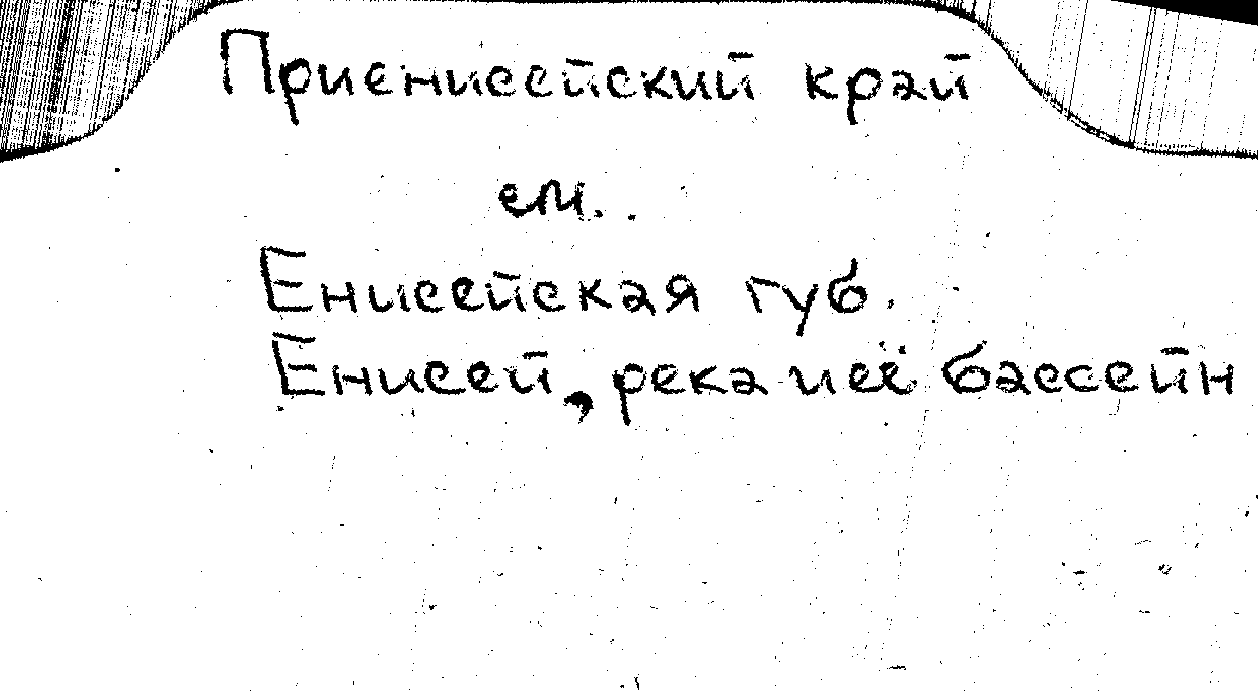 Приенисейский край
см.
Енисейская губ.
Енисей, река и её бассейн